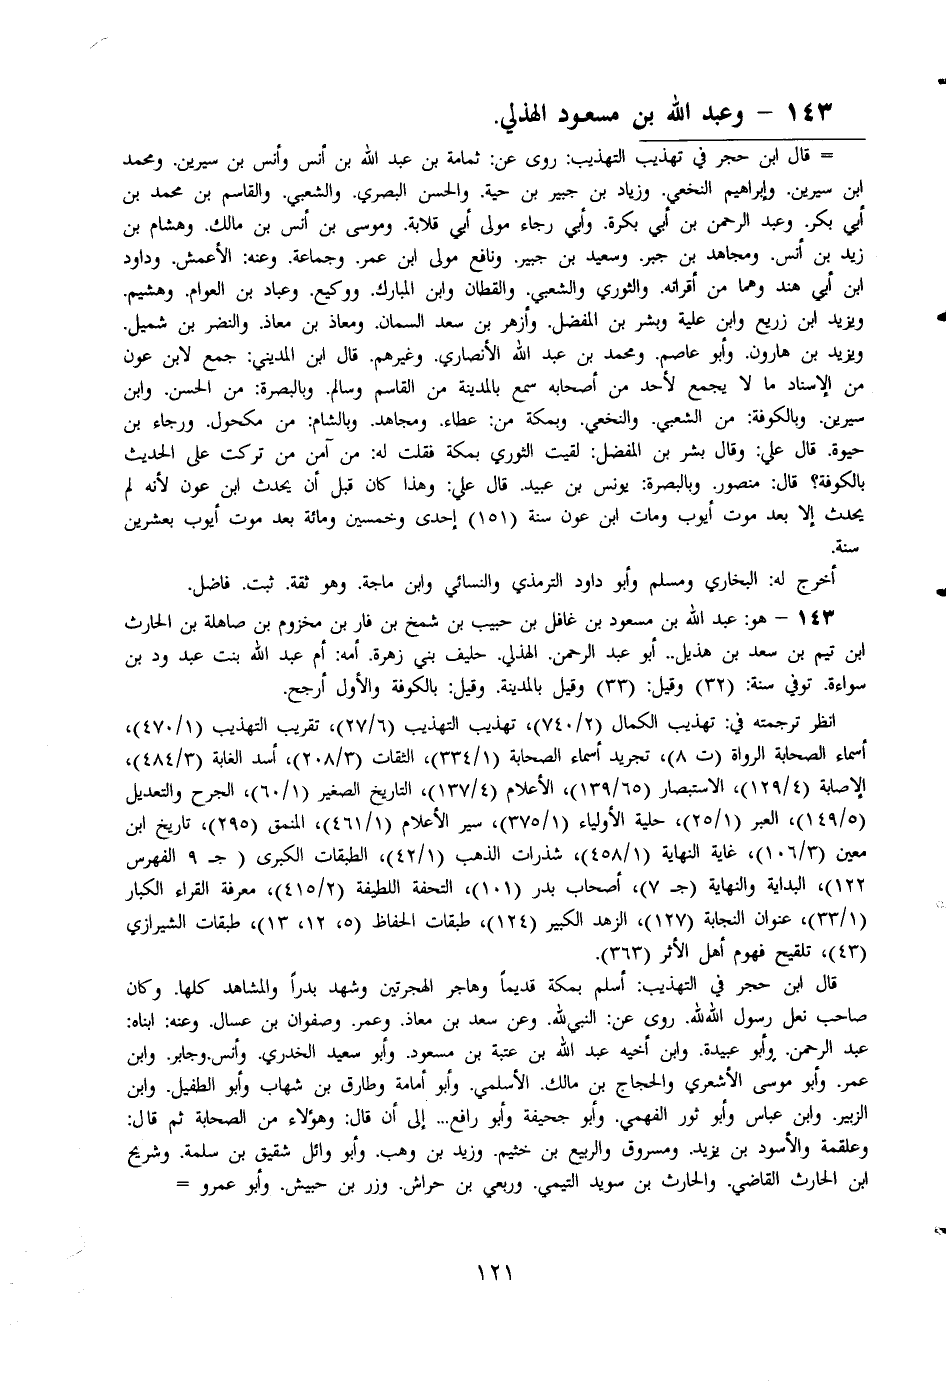 ١٤٣ - وعبد الله بن مسعود الهذلي.
= قال ابن حجر في تهذيب التهذيب: روى عن: ثمامة بن عبد الله بن أنس وأنس بن سيرين. ومحمد
ابن سيرين. وإبراهيم النخعي. وزياد بن جبير بن حية. والحسن البصري. والشعبي. والقاسم بن محمد بن
أبي بكر. وعبد الرحمن بن أبي بكرة. وأبي رجاء مولى أبي قلابة. وموسى بن أنس بن مالك. وهشام بن
زيد بن أنس. ومجاهد بن جبر. وسعيد بن جبير. ونافع مولى ابن عمر. وجماعة. وعنه: الأعمش. وداود
ابن أبي هند وهما من أقرانه. والثوري والشعبي. والقطان وابن المبارك. ووكيع. وعباد بن العوام. وهشيم.
ويزيد ابن زريع وابن علية وبشر بن المفضل. وأزهر بن سعد السمان. ومعاذ بن معاذ. والنضر بن شميل.
ويزيد بن هارون. وأبو عاصم. ومحمد بن عبد الله الأنصاري. وغيرهم. قال ابن المديني: جمع لابن عون
من الإسناد ما لا يجمع لأحد من أصحابه سمع بالمدينة من القاسم وسالم. وبالبصرة: من الحسن. وابن
سيرين. وبالكوفة: من الشعبي. والنخعي. وبمكة من: عطاء. ومجاهد. وبالشام: من مكحول. ورجاء بن
حيوة. قال علي: وقال بشر بن المفضل: لقيت الثوري بمكة فقلت له: من آمن من تركت على الحديث
بالكوفة؟ قال: منصور. وبالبصرة: يونس بن عبيد. قال علي: وهذا كان قبل أن يحدث ابن عون لأنه لم
يحدث إلا بعد موت أيوب ومات ابن عون سنة (١٥١) إحدى وخمسين ومائة بعد موت أيوب بعشرين
سنة.
أخرج له: البخاري ومسلم وأبو داود الترمذي والنسائي وابن ماجة. وهو ثقة. ثبت. فاضل.
١٤٣ - هو: عبد الله بن مسعود بن غافل بن حبيب بن شمخ بن فار بن مخزوم بن صاهلة بن الحارث
ابن تيم بن سعد بن هذيل.. أبو عبد الرحمن. الهذلي. حليف بني زهرة. أمه: أم عبد الله بنت عبد ود بن
سواءة. توفي سنة: (٣٢) وقيل: (٣٣) وقيل بالمدينة. وقيل: بالكوفة والأول أرجح.
انظر ترجمته في: تهذيب الكمال (٧٤٠/٢)، تهذيب التهذيب (٢٧/٦)، تقريب التهذيب (٤٧٠/١)،
أسماء الصحابة الرواة (ت ٨)، تجريد أسماء الصحابة (٣٣٤/١)، الثقات (٢٠٨/٣)، أسد الغابة (٤٨٤/٣)،
الإصابة (١٢٩/٤)، الاستبصار (١٣٩/٦٥)، الأعلام (١٣٧/٤)، التاريخ الصغير (٦٠/١)، الجرح والتعديل
(١٤٩/٥)، العبر (٢٥/١)، حلية الأولياء (٣٧٥/١)، سير الأعلام (٤٦١/١)، المنمق (٢٩٥)، تاريخ ابن
معين (١٠٦/٣)، غاية النهاية (٤٥٨/١)، شذرات الذهب (٤٢/١)، الطبقات الكبرى ( جـ ٩ الفهرس
١٢٢)، البداية والنهاية (جـ ٧)، أصحاب بدر (١٠١)، التحفة اللطيفة (٤١٥/٢)، معرفة القراء الكبار
(٣٣/١)، عنوان النجابة (١٢٧)، الزهد الكبير (١٢٤)، طبقات الحفاظ (٥، ١٢، ١٣)، طبقات الشيرازي
(٤٣)، تلقيح فهوم أهل الأثر (٣٦٣).
قال ابن حجر في التهذيب: أسلم بمكة قديماً وهاجر الهجرتين وشهد بدراً والمشاهد كلها. وكان
صاحب نعل رسول الله‌لله. روى عن: النبي‌لله. وعن سعد بن معاذ. وعمر. وصفوان بن عسال. وعنه: ابناه:
عبد الرحمن. وأبو عبيدة. وابن أخيه عبد الله بن عتبة بن مسعود. وأبو سعيد الخدري. وأنس.وجابر. وابن
عمر. وأبو موسى الأشعري والحجاج بن مالك. الأسلمي. وأبو أمامة وطارق بن شهاب وأبو الطفيل. وابن
الزبير. وابن عباس وأبو ثور الفهمي. وأبو جحيفة وأبو رافع... إلى أن قال: وهؤلاء من الصحابة ثم قال:
وعلقمة والأسود بن يزيد. ومسروق والربيع بن خثيم. وزيد بن وهب. وأبو وائل شقيق بن سلمة. وشريح
ابن الحارث القاضي. والحارث بن سويد التيمي. وربعي بن حراش. وزر بن حبيش. وأبو عمرو =
١٢١